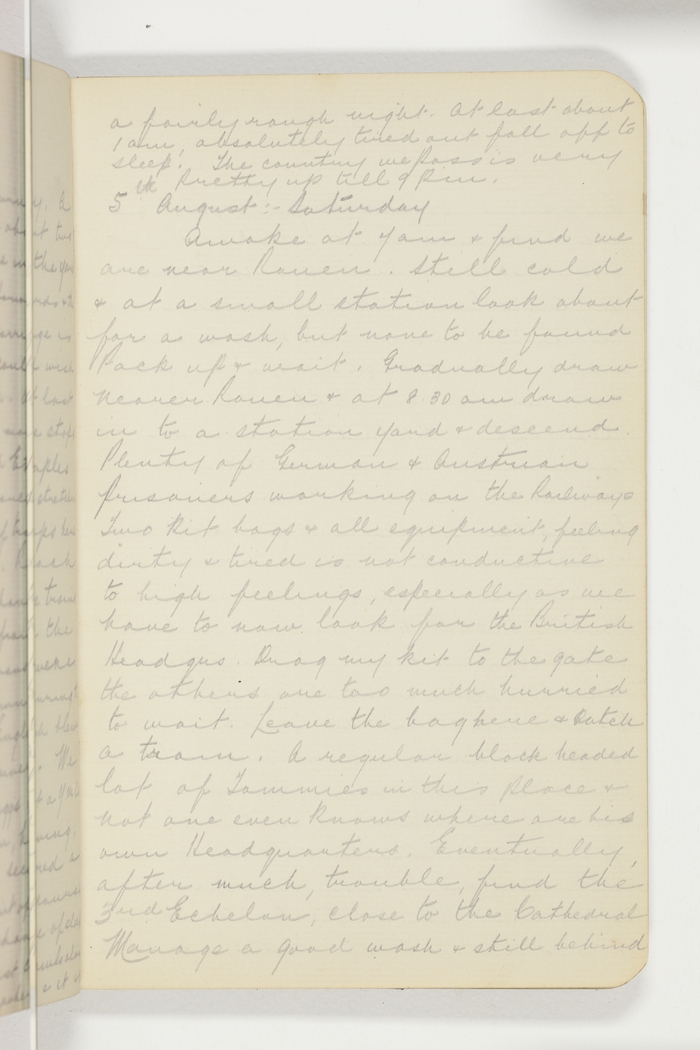 a fairly rough night. At last about
1 am, absolutely tired out fall off to
sleep. The country we pass is very
pretty up till 9 pm.
5th August :- Saturday
Awake at 7am & find we
are near Rouen. Still cold
& at a small station look about
for a wash, but none to be found
Pack up & wait. Gradually draw
nearer Rouen & at 8.30 am draw
in to a station yard & descend.
Plenty of German & Austrian
prisoners working on the Railways
Two Kit bags & all equipment, feeling
dirty & tired is not conductive
to high feelings, especially as we
have to now look for the British
Headqrs. Drag my kit to the gate
the others are too much hurried
to wait. Leave the bag here & Catch
a tram. A regular block headed
lot of Tommies in this place &
not one even knows where are his
own Headquarters. Eventually,
after much, trouble, find the
3rd Echelon, close to the Cathedral
Manage a good wash & still behind